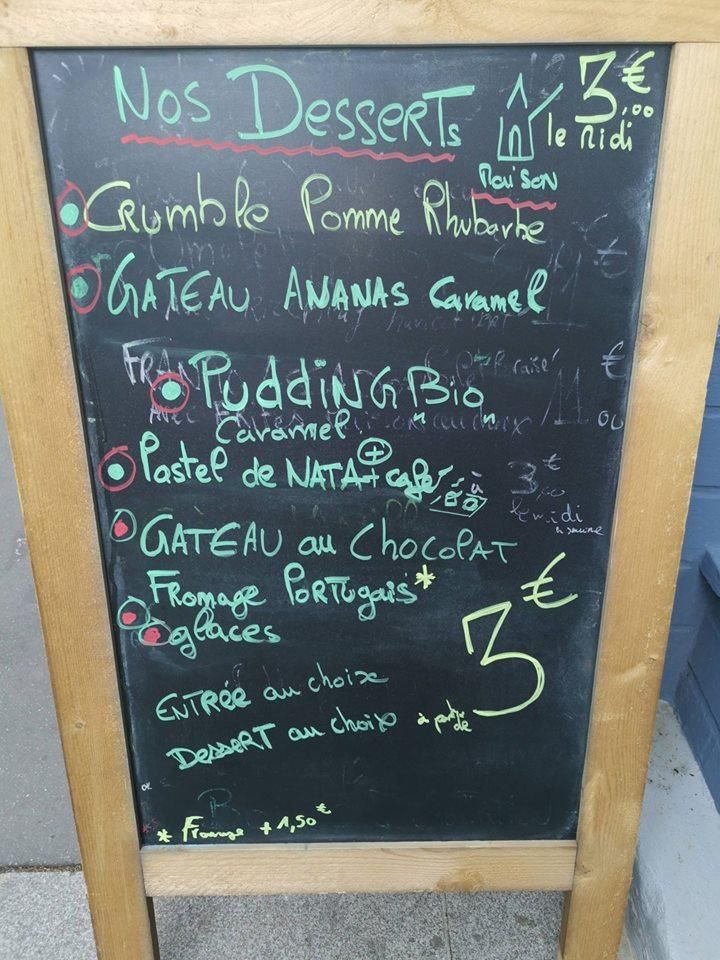 Nos DESSERTS
3€,00
le midi
Maison
CRUMBLE POMME Rhubarbe
GATEAU ANANAS Caramel
PUDDING "Bio"
Caramel
Pastel de NATA + café à 3€,00
le midi
en semaine
GATEAU au CHOCOLAT
FROMAGE PORTUGAIS *
glaces
3€
ENTRÉE au choix
DESSERT au choix à partir de
* Fromage + 1,50€